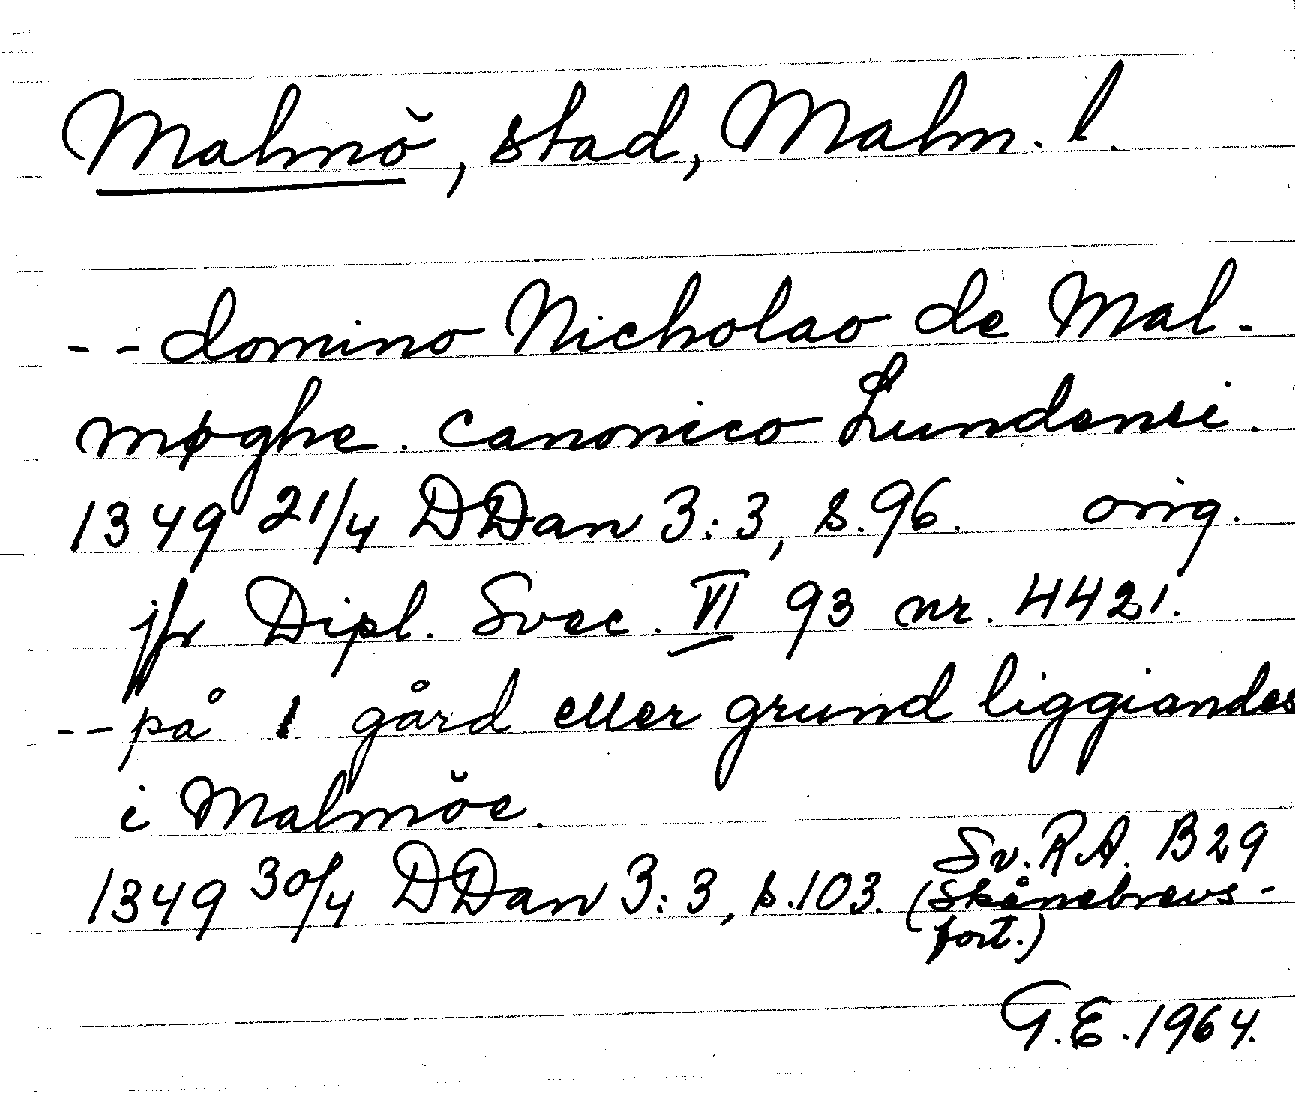 Malmö, stad, Malm. l.
-- domino Nicholao de Mal-
møghe. canonico Lundensi.
1349 21/4 DDan 3:3, s.96. orig.
jfr Dipl. Svec. VI 93 nr. 4421.
-- på 1 gård eller grund liggiandes
i Malmöe.
1349 30/4 DDan 3:3, s.103. Sv. R.A. B29
(Skånebrevs-
fört.)
G.E. 1964.